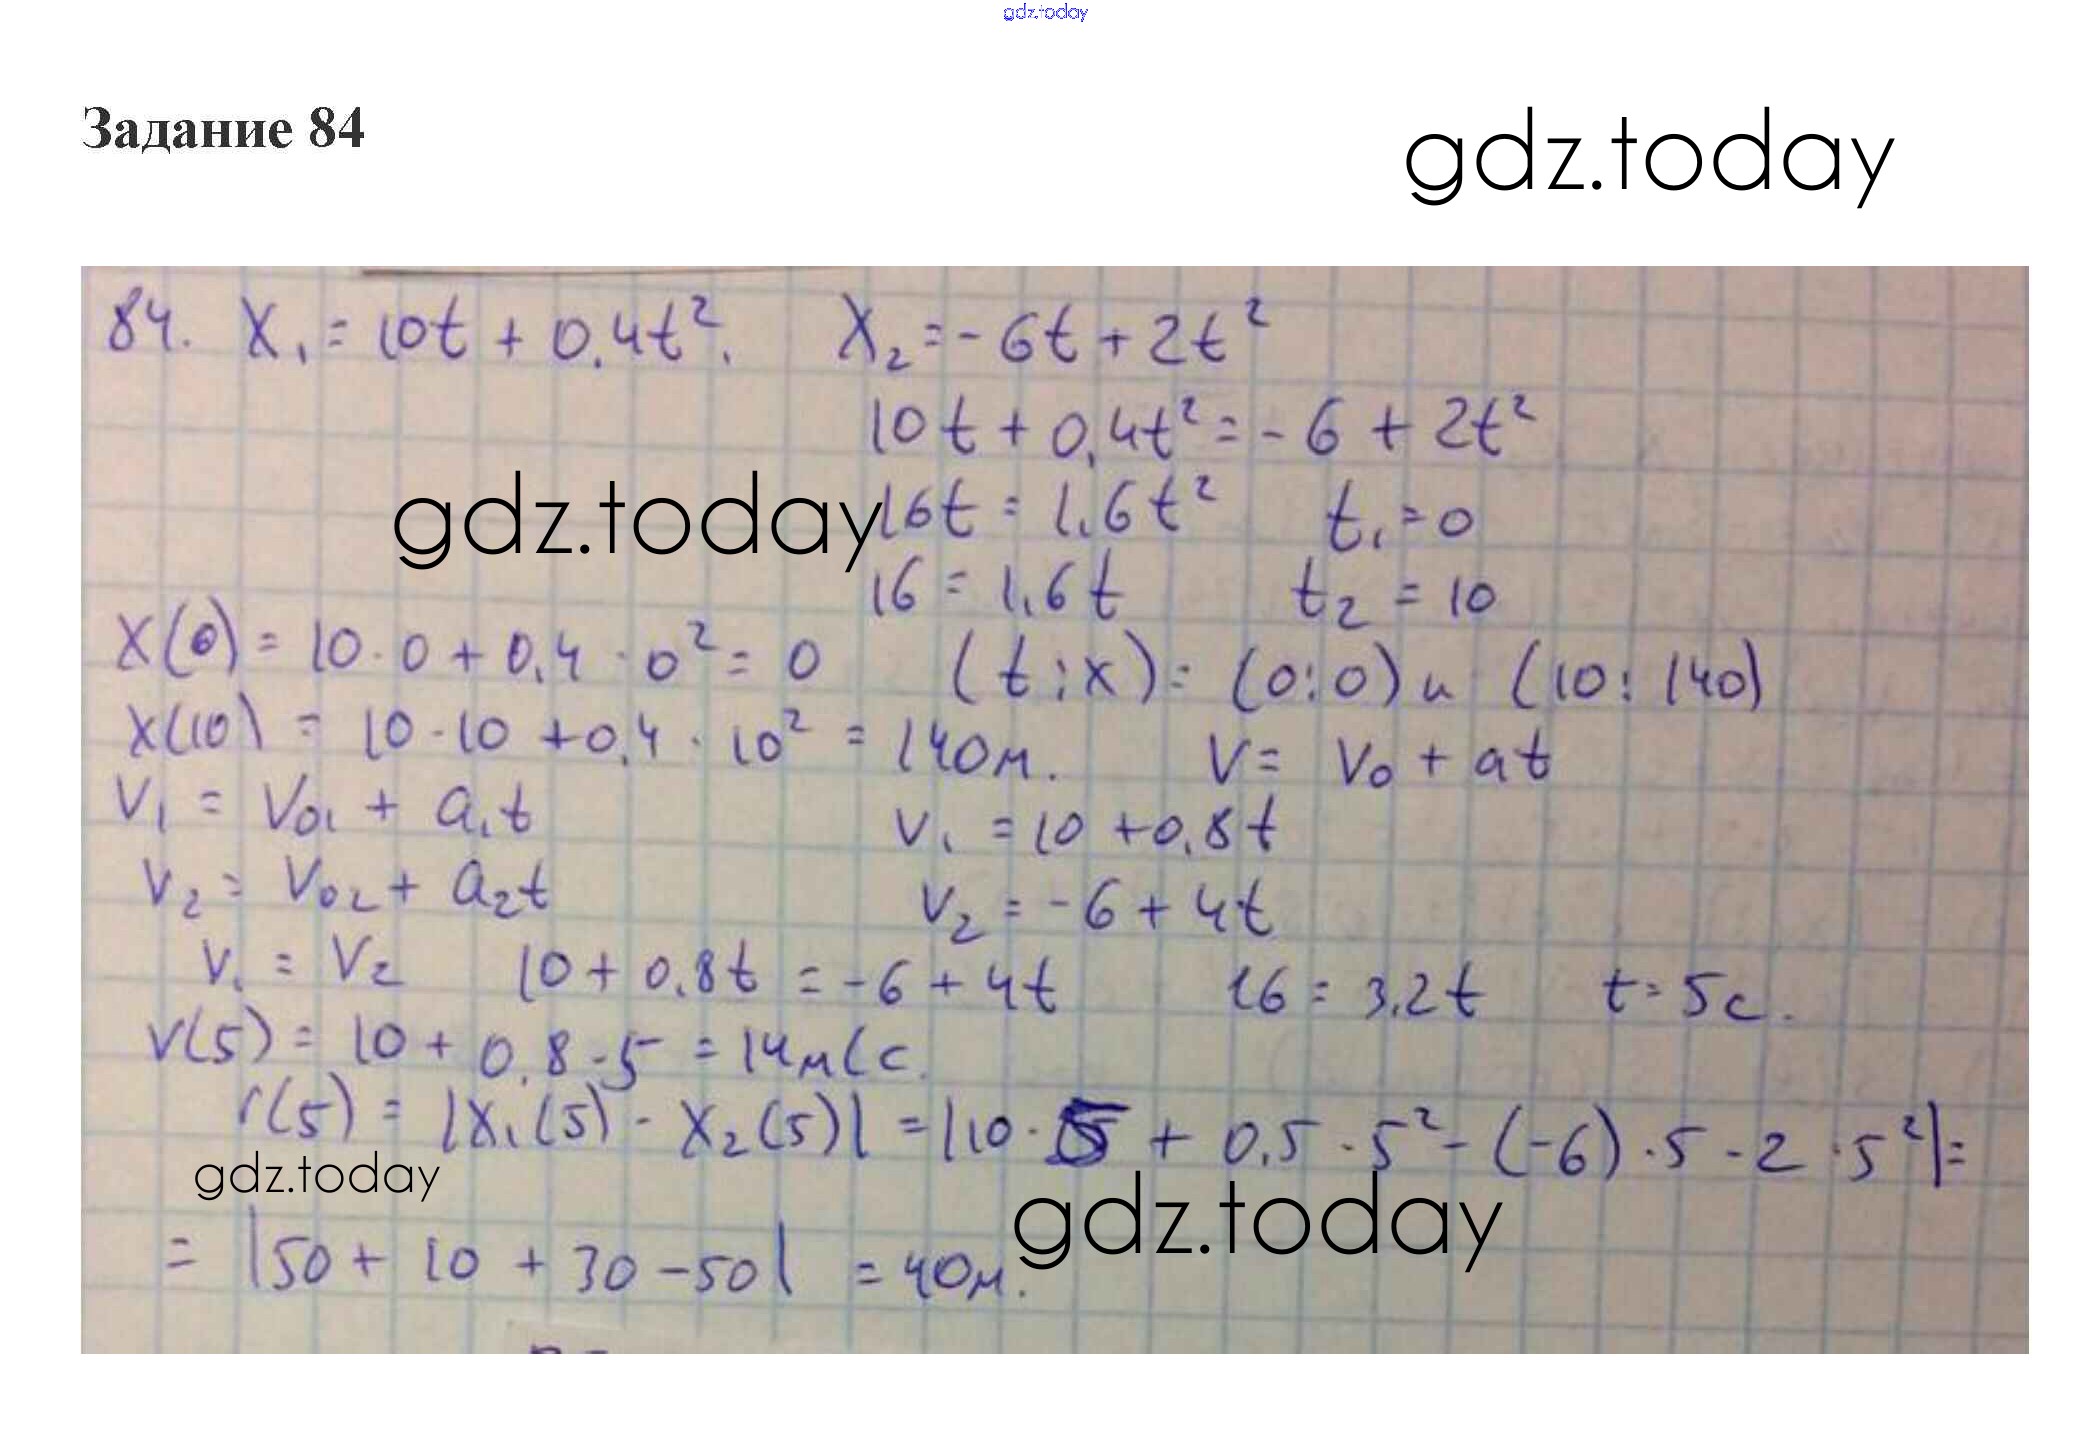 gdz.today
Задание 84
gdz.today
84. x₁ = 10t + 0.4t². x₂ = -6t + 2t²
10t + 0,4t² = -6 + 2t²
gdz.today
16t = 1.6t² t₁ = 0
16 = 1.6t t₂ = 10
x(0) = 10·0 + 0,4·0² = 0 (t;x) = (0;0) и (10; 140)
x(10) = 10·10 + 0,4·10² = 140м. V = V₀ + at
V₁ = V₀₁ + a₁t V₁ = 10 + 0.8t
V₂ = V₀₂ + a₂t V₂ = -6 + 4t
V₁ = V₂ 10 + 0.8t = -6 + 4t 16 = 3.2t t = 5с.
V(5) = 10 + 0.8·5 = 14м/с.
r(5) = |x₁(5) - x₂(5)| = |10·5 + 0.5·5² - (-6)·5 - 2·5²| =
gdz.today
gdz.today
= |50 + 10 + 30 - 50| = 40м.